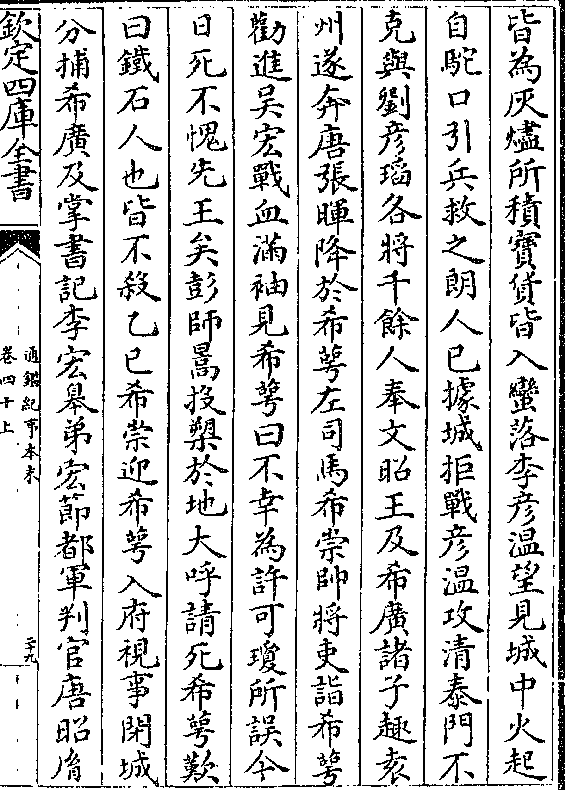 皆為灰燼所積寶貨皆入蠻落李彦温望見城中火起
自駝口引兵救之朗人已據城拒戰彦温攻清泰門不
克與劉彦瑫各將千餘人奉文昭王及希廣諸子趣袁
州遂奔唐張暉降於希萼左司馬希崇帥將吏詣希萼
勸進吴宏戰血滿袖見希萼曰不幸為許可瓊所誤今
日死不愧先王矣彭師暠投槊於地大呼請死希萼歎
曰鐵石人也皆不殺乙已希崇迎希萼入府視事閉城
分捕希廣及掌書記李宏皋弟宏節都軍判官唐昭胤
欽定四庫全書
通鑑紀事本末
卷四十上
二十九